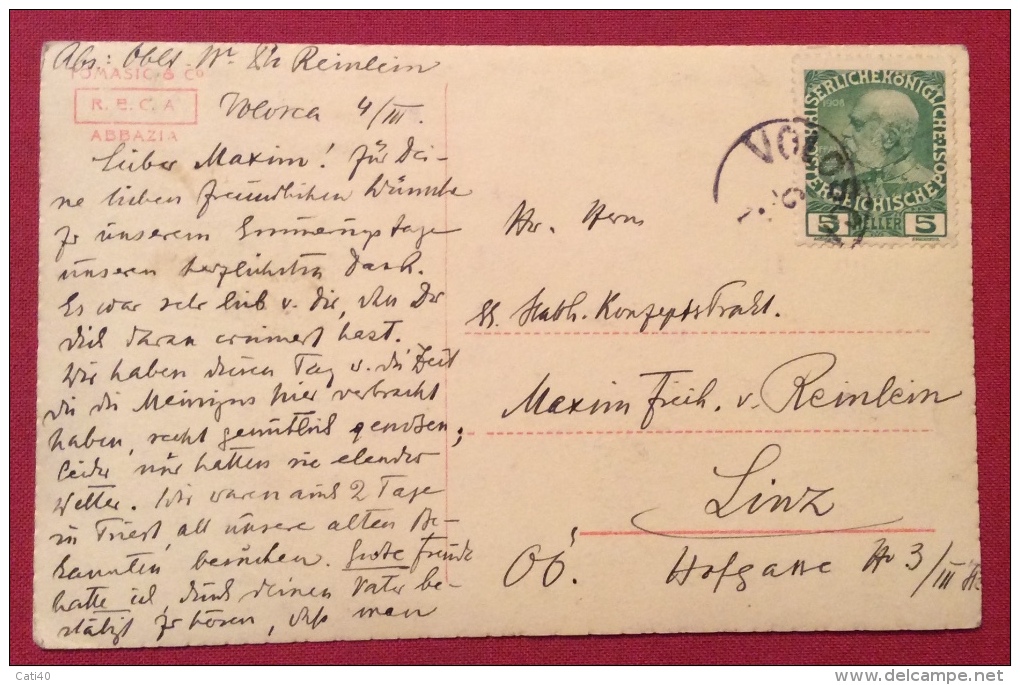 Abs.: Oblt. Reinlein
TOMASIC & Co
R. E. C. A
ABBAZIA
Volosca 4/III.
Lieber Maxim! Für Dei-
ne lieben freundlichen Wünsche
zu unserem Erinnerungstage
unseren herzlichsten Dank.
Es war sehr lieb v. dir, daß Du
dich daran erinnert hast.
Wir haben diesen Tag u. die Zeit
die die Meinigen hier verbracht
haben, recht gemütlich genossen;
leider nur hatten sie elendes
Wetter. Wir waren auch 2 Tage
in Triest, all unsere alten Be-
kannten besuchen. Große Freude
hatte ich, durch deinen Vater be-
stätigt zu hören, daß man
KAISERLICHEKÖNIGLICHE
ÖSTERREICHISCHE POST
1908
5 HELLER 5
VOLOSCA
Hr. Herrn
kk. Statth. Konzeptsprakt.
Maxim Freih. v. Reinlein
Linz
OÖ. Hofgasse No 3/III
Cati40
http://www.delcampe.net